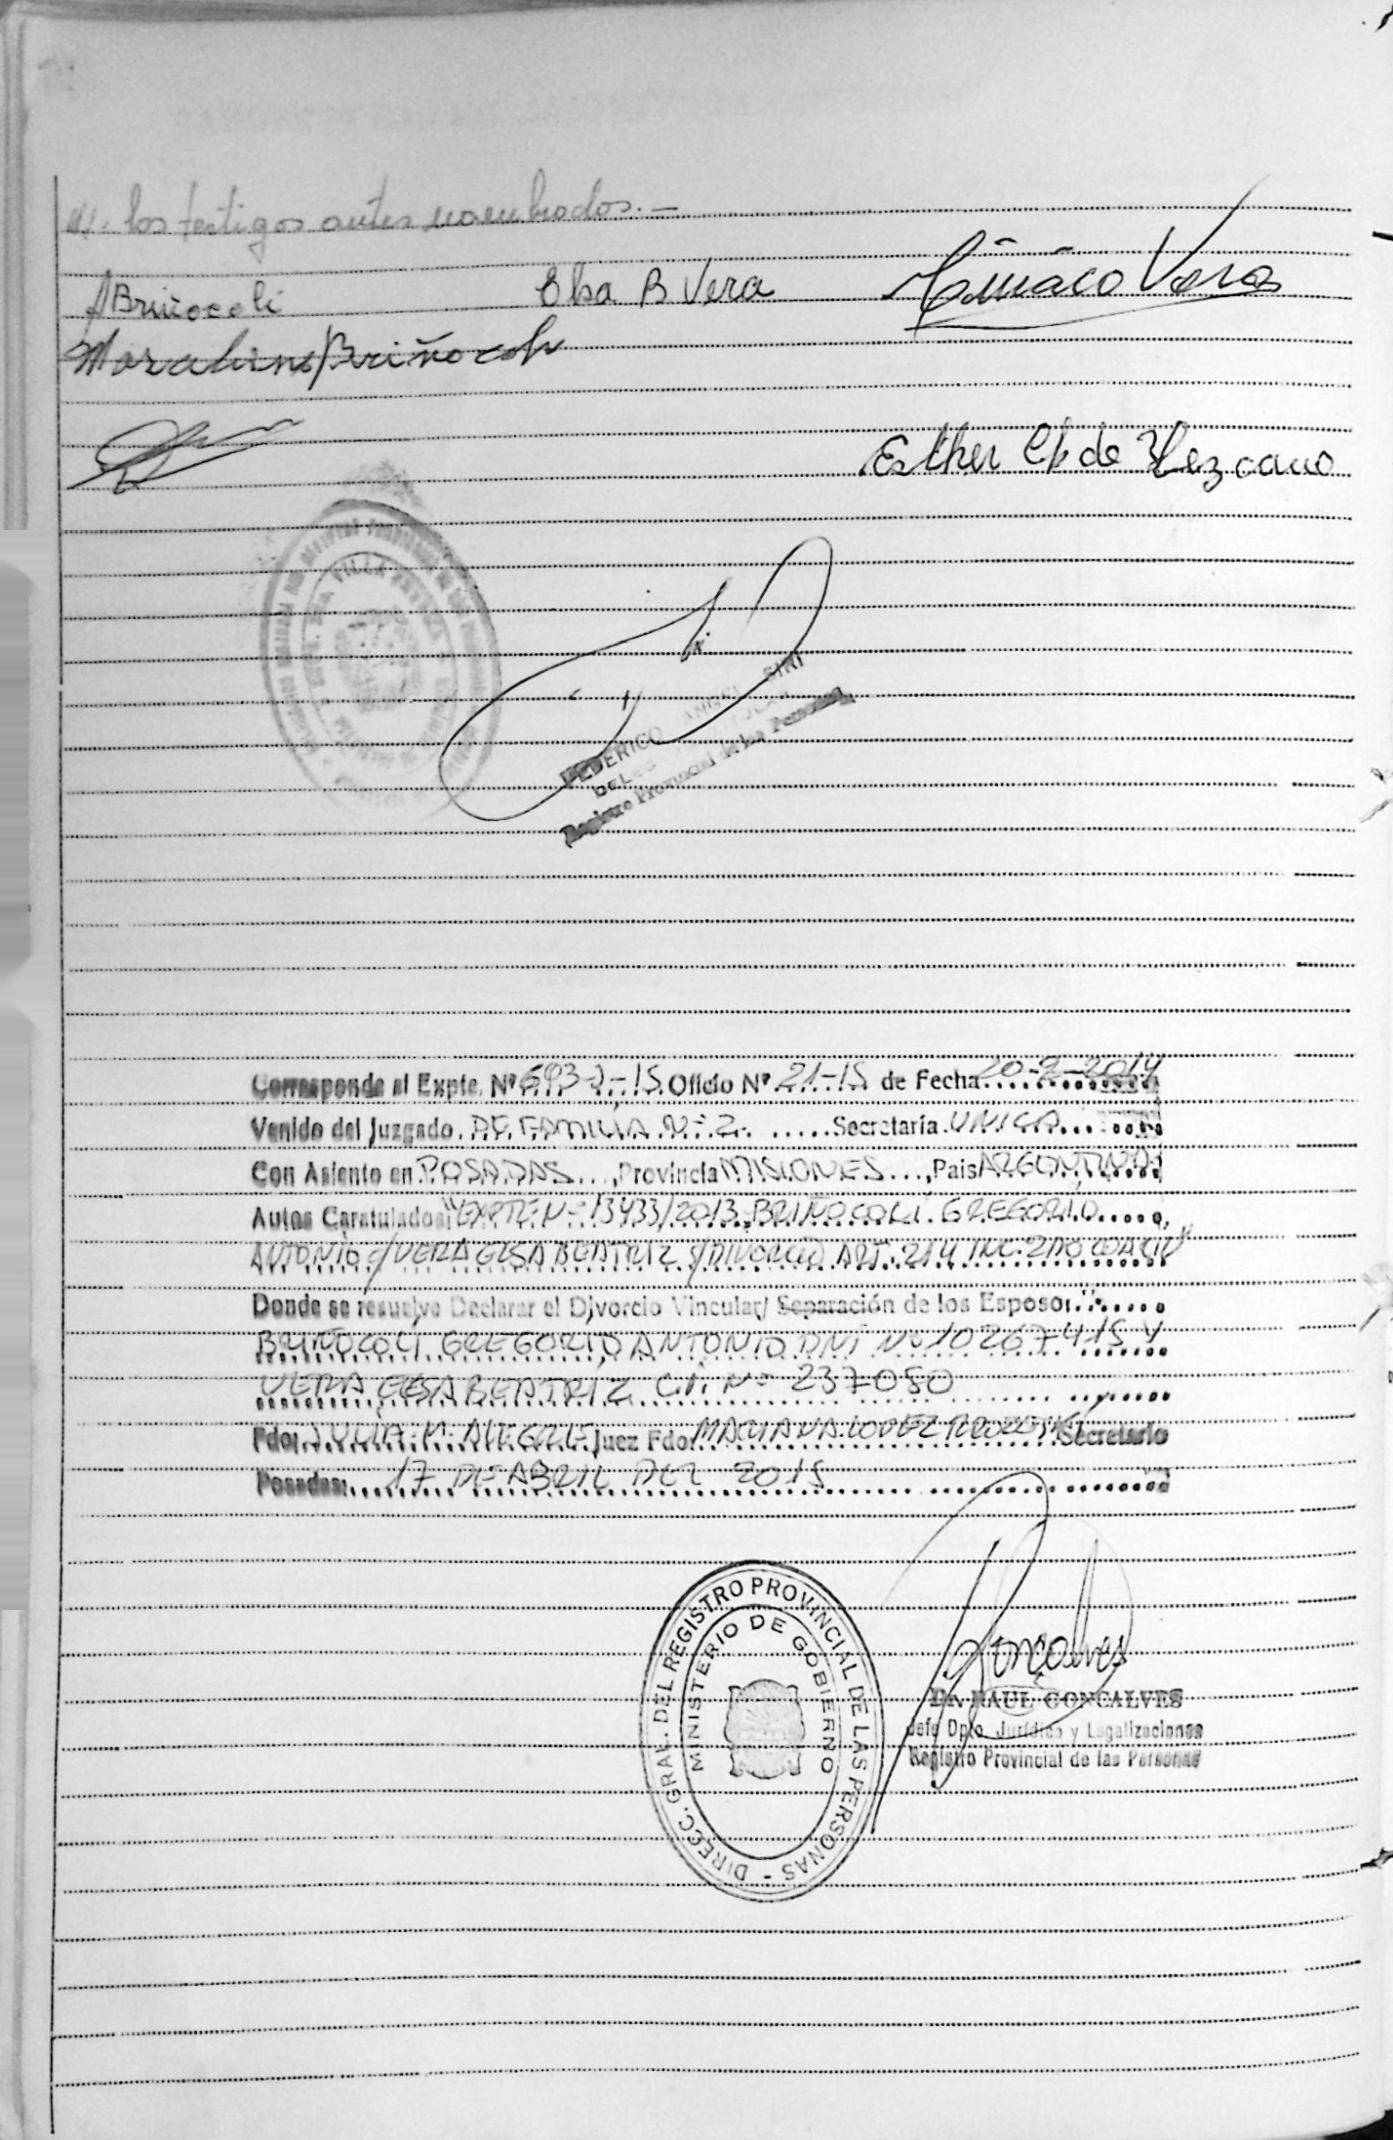 los testigos antes nombrados.—
ABriñocoli
Elsa B Vera
Ciriaco Vera
Marcelino Briñocoli
Esther Ch de Lezcano
VILLA
FEDERICO ANGEL SIRI
Registro Provincial de las Personas
Corresponde al Expte. Nº 693-J-15 Oficio Nº 21-15 de Fecha 20-2-2014
Venido del Juzgado DE FAMILIA Nº 2. Secretaría UNICA
Con Asiento en POSADAS, Provincia MISIONES, Pais ARGENTINA
Autos Caratulados: "EXPTE Nº 13433/2013 BRIÑOCOLI GREGORIO
ANTONIO c/ VERA ELSA BEATRIZ s/ DIVORCIO ART. 214 INC. 2DO COD. CIV"
Donde se resuelve Declarar el Divorcio Vincular/ Separación de los Esposos:
BRIÑOCOLI GREGORIO ANTONIO DNI Nº 10267415 Y
VERA ELSA BEATRIZ C.I. Nº 237080
Fdo: JULIA M. ALEGRE Juez Fdo: MARIANA LOPEZ Secretario
Posadas: 17 DE ABRIL DEL 2015
DIRECC. GRAL. DEL REGISTRO PROVINCIAL DE LAS PERSONAS -
MINISTERIO DE GOBIERNO
Goncalves
Dr. RAUL GONCALVES
Jefe Dpto. Jurídico y Legalizaciones
Registro Provincial de las Personas